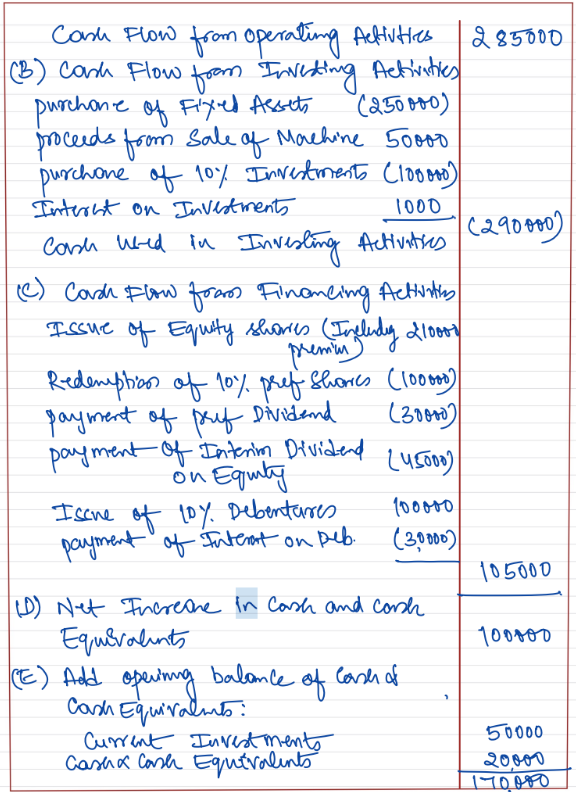 Cash Flow from Operating Activities 285000
(B) Cash Flow from Investing Activities
purchase of Fixed Assets (250000)
proceeds from Sale of Machine 50000
purchase of 10% Investments (100000)
Interest on Investments 1000
Cash used in Investing Activities (290000)
(C) Cash Flow from Financing Activities
Issue of Equity shares (Including 210000
premium)
Redemption of 10% pref Shares (100000)
payment of pref Dividend (30000)
payment of Interim Dividend (45000)
on Equity
Issue of 10% Debentures 100000
payment of Interest on Deb. (30,000)
105000
(D) Net Increase in Cash and cash
Equivalents 100000
(E) Add opening balance of Cash &
Cash Equivalents:
Current Investments 50000
Cash & Cash Equivalents 20,000
170,000